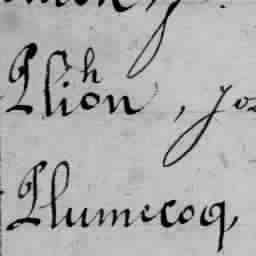 Plihon, Jo
Plumecoq,